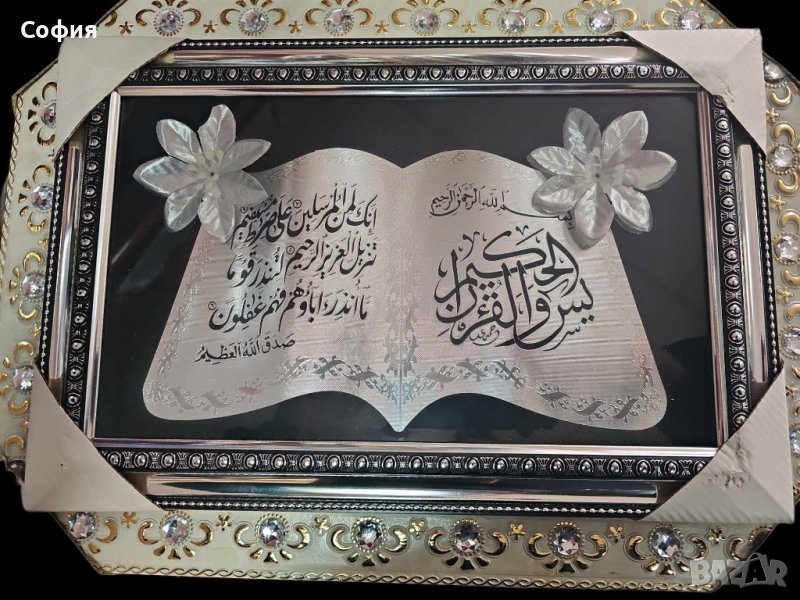 София
بسم الله الرحمن الرحيم
يس والقرءان الحكيم
إنك لمن المرسلين على صراط مستقيم
تنزيل العزيز الرحيم لتنذر قوما
ما انذر اباؤهم فهم غفلون
صدق الله العظيم
BAZAR